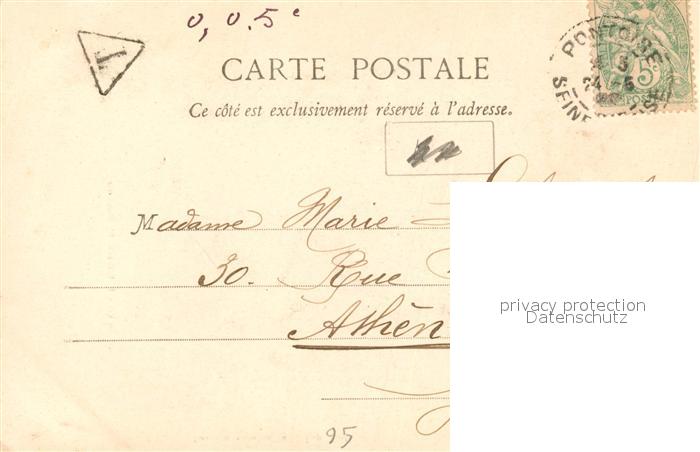 0,05c
T
CARTE POSTALE
Ce côté est exclusivement réservé à l'adresse.
PONTOISE
5
24
SEINE
Madame Marie
30. Rue
Athèn
privacy protection
Datenschutz
95